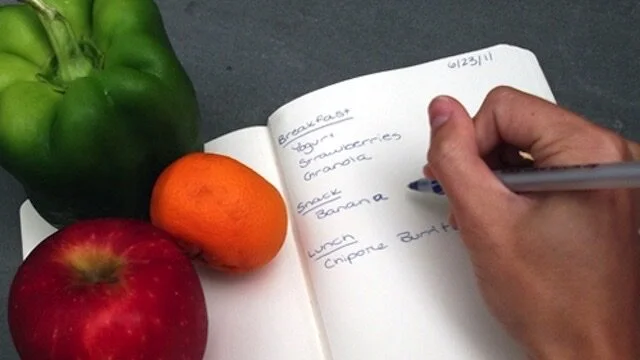 6/23/11
Breakfast
Yogurt
Strawberries
Granola
Snack
Banana
Lunch
Chipotle